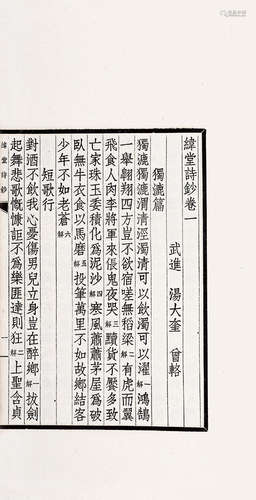 緯堂詩鈔卷一
武進 湯大奎 曾輅
獨漉篇
獨漉獨漉渭清涇濁清可以飲濁可以濯一解鴻鵠
一舉翱翔四方豈不欲宿嗟無稻粱二解有虎而翼
飛食人肉李將軍來倀鬼夜哭三解黷貨不饜多致
亡家珠玉委積化為泥沙四解寒風蕭蕭茅屋為破
臥無牛衣食以馬磨五解投筆萬里不如故鄉結客
少年不如老蒼六解
短歌行
對酒不飲我心憂傷男兒立身豈在醉鄉一解拔劍
起舞悲歌慨慷詎不為樂匪達則狂二解上聖含貞
緯堂詩鈔
一